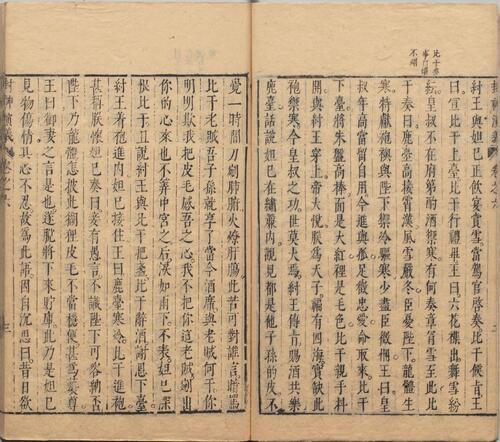 紂王與妲己正飲宴賞雪當駕官啓奏比干候旨王
曰宣比干上臺比干行禮畢王曰六花襍出舞雪紛
紜皇叔不在府第酌酒禦寒有何奏章冒雪至此比
干奏曰鹿臺高接霄漢風雪嚴冬臣憂陛下龍體生
寒特獻袍襖與陛下禦冷驅寒少盡臣微悃王曰皇
叔年高當留自用今進與孤足徵忠愛命取來比干
下臺將朱盤高捧面是大紅裡是毛色比干親手抖
開與紂王穿上帝大悅朕為天子富有四海實缺此
袍禦寒今皇叔之功世莫大焉紂王傳旨賜酒共樂
鹿臺話說妲己在繡簾內觀見都是他子孫的皮不
覺一時間刀剜肺腑火燎肝腸此苦可對誰言暗罵
比干老賊吾子孫就享了當今酒席與老賊何干你
明明欺我把皮毛惑吾之心我不把你這老賊剜出
你的心來也不筭中宮之后淚如雨下不表妲己深
恨比干且說紂王與比干把盞比干辭酒謝恩下臺
紂王着袍進內妲己接住王曰鹿臺寒冷比干進袍
甚稱朕懷妲己奏曰妾有愚言不識陛下可容納否
陛下乃龍體怎披此狐狸皮毛不當穩便甚為褻尊
王曰御妻之言是也遂脫將下來貯庫此乃是妲己
見物傷情其心不忍故為此語因自沉思曰昔日欲